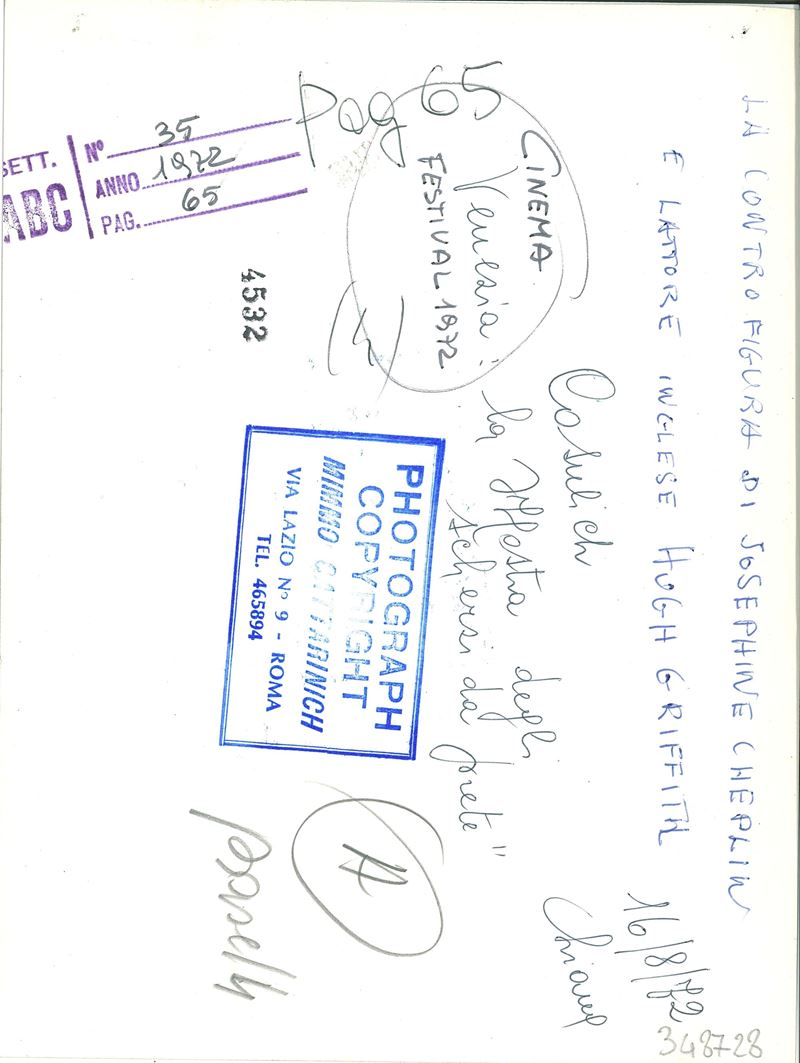 LA CONTROFIGURA DI JOSEPHINE CHEPLIN
E LATTORE INGLESE HUGH GRIFFITH
16/8/72
Casulich
CINEMA
Venezia:
FESTIVAL 1972
la degli
scherzi da prete"
pag 65
SETT.
ABC
Nº 35
ANNO 1972
PAG. 65
4532
PHOTOGRAPH
COPYRIGHT
MIMMO CATTARINICH
VIA LAZIO Nº 9 - ROMA
TEL. 465894
A
348728